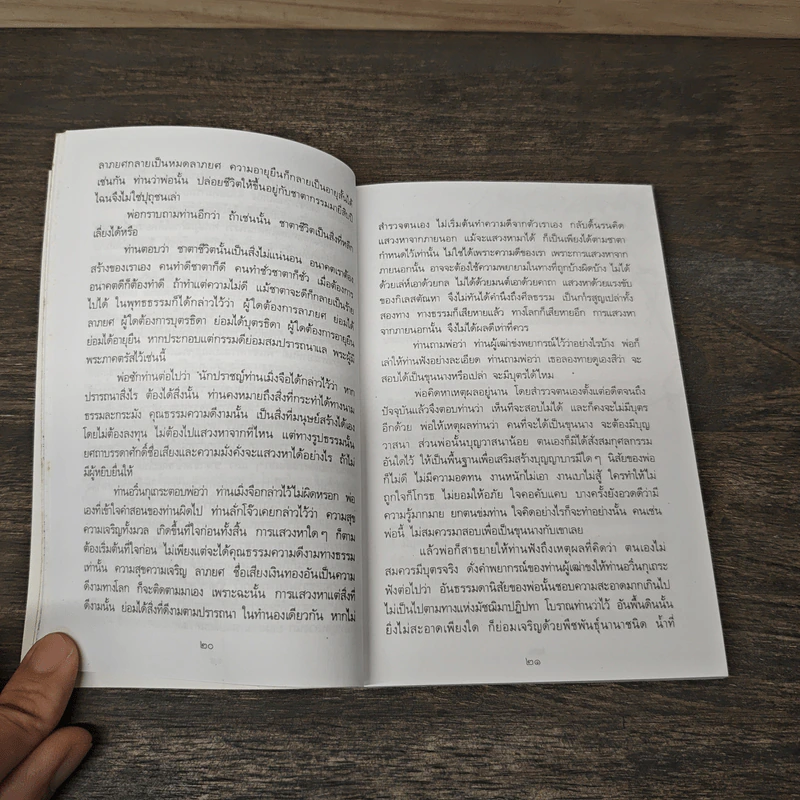 ลาภยศกลายเป็นหมดลาภยศ ความอายุยืนก็กลายเป็นอายุสั้นได้
เช่นกัน ท่านว่าพ่อนั้น ปล่อยชีวิตให้ขึ้นอยู่กับชาตากรรมมายี่สิบปี
ไฉนจึงไม่ใช่ปุถุชนเล่า
พ่อกราบถามท่านอีกว่า ถ้าเช่นนั้น ชาตาชีวิตเป็นสิ่งที่หลีก
เลี่ยงได้หรือ
ท่านตอบว่า ชาตาชีวิตนั้นเป็นสิ่งไม่แน่นอน อนาคตเราต้อง
สร้างของเราเอง คนทำดีชาตาก็ดี คนทำชั่วชาตาก็ชั่ว เมื่อต้องการ
อนาคตดีก็ต้องทำดี ถ้าทำแต่ความไม่ดี แม้ชาตาจะดีก็กลายเป็นร้าย
ไปได้ ในพุทธธรรมก็ได้กล่าวไว้ว่า ผู้ใดต้องการลาภยศ ย่อมได้
ลาภยศ ผู้ใดต้องการบุตรธิดา ย่อมได้บุตรธิดา ผู้ใดต้องการอายุยืน
ย่อมได้อายุยืน หากประกอบแต่กรรมดีย่อมสมปรารถนาแล พระผู้มี
พระภาคตรัสไว้เช่นนี้
พ่อซักท่านต่อไปว่า นักปราชญ์ท่านเม่งจื๊อได้กล่าวไว้ว่า หาก
ปรารถนาสิ่งไร ต้องได้สิ่งนั้น ท่านคงหมายถึงสิ่งที่กระทำได้ทางนาม
ธรรมละกระมัง คุณธรรมความดีงามนั้น เป็นสิ่งที่มนุษย์สร้างได้เอง
โดยไม่ต้องลงทุน ไม่ต้องไปแสวงหาจากที่ไหน แต่ทางรูปธรรมนั้น
ยศถาบรรดาศักดิ์ชื่อเสียงและความมั่งคั่งจะแสวงหาได้อย่างไร ถ้าไม่
มีผู้หยิบยื่นให้
ท่านอวิ๋นกุเถระตอบพ่อว่า ท่านเม่งจื๊อกล่าวไว้ไม่ผิดหรอก พ่อ
เองที่เข้าใจคำสอนของท่านผิดไป ท่านลักโจ๊วเคยกล่าวไว้ว่า ความสุข
ความเจริญทั้งมวล เกิดขึ้นที่ใจก่อนทั้งสิ้น การแสวงหาใดๆ ก็ตาม
ต้องเริ่มต้นที่ใจก่อน ไม่เพียงแต่จะได้คุณธรรมความดีงามทางธรรม
เท่านั้น ความสุขความเจริญ ลาภยศ ชื่อเสียงเงินทองอันเป็นความ
ดีงามทางโลก ก็จะติดตามมาเอง เพราะฉะนั้น การแสวงหาแต่สิ่งที่
ดีงามนั้น ย่อมได้สิ่งที่ดีงามตามปรารถนา ในทำนองเดียวกัน หากไม่
๒๐
สำรวจตนเอง ไม่เริ่มต้นทำความดีจากตัวเราเอง กลับดิ้นรนคิด
แสวงหาจากภายนอก แม้จะแสวงหามาได้ ก็เป็นเพียงได้ตามชาตา
กำหนดไว้เท่านั้น ไม่ใช่ได้เพราะความดีของเรา เพราะการแสวงหาจาก
ภายนอกนั้น อาจจะต้องใช้ความพยายามในทางที่ถูกบ้างผิดบ้าง ไม่ได้
ด้วยเล่ห์เอาด้วยกล ไม่ได้ด้วยมนต์เอาด้วยคาถา แสวงหาด้วยแรงขับ
ของกิเลสตัณหา จึงไม่ทันได้คำนึงถึงศีลธรรม เป็นการสูญเปล่าทั้ง
สองทาง ทางธรรมก็เสียหายแล้ว ทางโลกก็เสียหายอีก การแสวงหา
จากภายนอกนั้น จึงไม่ได้ผลดีเท่าที่ควร
ท่านถามพ่อว่า ท่านผู้เฒ่าข่งพยากรณ์ไว้ว่าอย่างไรบ้าง พ่อก็
เล่าให้ท่านฟังอย่างละเอียด ท่านถามพ่อว่า เธอลองทายดูเองสิว่า จะ
สอบได้เป็นขุนนางหรือเปล่า จะมีบุตรได้ไหม
พ่อคิดหาเหตุผลอยู่นาน โดยสำรวจตนเองตั้งแต่อดีตจนถึง
ปัจจุบันแล้วจึงตอบท่านว่า เห็นที่จะสอบไม่ได้ และก็คงจะไม่มีบุตร
อีกด้วย พ่อให้เหตุผลท่านว่า คนที่จะได้เป็นขุนนาง จะต้องมีบุญ
วาสนา ส่วนพ่อนั้นบุญวาสนาน้อย ตนเองก็มิได้สั่งสมกุศลกรรม
อันใดไว้ ให้เป็นพื้นฐานเพื่อเสริมสร้างบุญญาบารมีใดๆ นิสัยของพ่อ
ก็ไม่ดี ไม่มีความอดทน งานหนักไม่เอา งานเบาไม่สู้ ใครทำให้ไม่
ถูกใจก็โกรธ ไม่ยอมให้อภัย ใจคอคับแคบ บางครั้งยังอวดดีว่ามี
ความรู้มากมาย ยกตนข่มท่าน ใจคิดอย่างไรก็จะทำอย่างนั้น คนเช่น
พ่อนี้ ไม่สมควรมาสอบเพื่อเป็นขุนนางกับเขาเลย
แล้วพ่อก็สาธยายให้ท่านฟังถึงเหตุผลที่คิดว่า ตนเองไม่
สมควรมีบุตรจริง ดั่งคำพยากรณ์ของท่านผู้เฒ่าข่งให้ท่านอวิ๋นกุเถระ
ฟังต่อไปว่า อันธรรมดานิสัยของพ่อนั้นชอบความสะอาดมากเกินไป
ไม่เป็นไปตามทางแห่งมัชฌิมาปฏิปทา โบราณท่านว่าไว้ อันพื้นดินนั้น
ยิ่งไม่สะอาดเพียงใด ก็ย่อมเจริญด้วยพืชพันธุ์นานาชนิด น้ำที่
๒๑